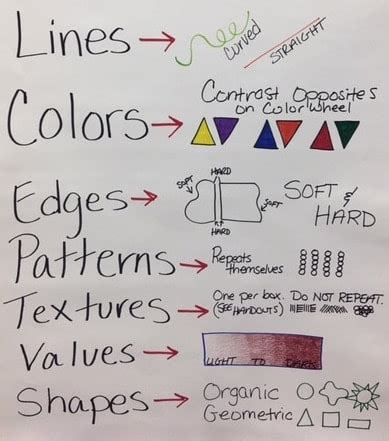 Lines → Curved STRAIGHT
Contrast Opposites
Colors → on Color Wheel
HARD
SOFT
Edges → SOFT SOFT &
HARD HARD
Patterns → Repeats
themselves
Textures → One per box. DO NOT REPEAT.
(SEE HANDOUTS)
Values → LIGHT TO DARK
Shapes → Organic
Geometric